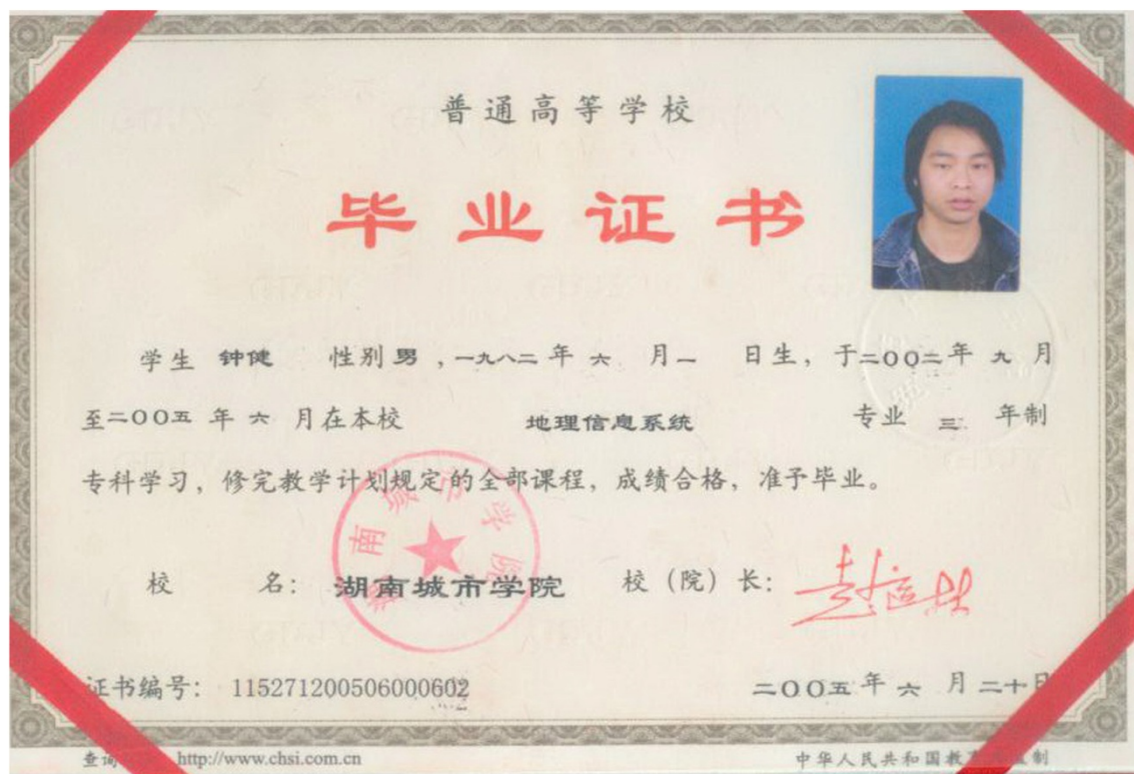 普通高等学校
毕业证书
学生 钟健 性别男，一九八二年六月一日生，于二〇〇二年九月
至二〇〇五年六月在本校 地理信息系统 专业 三 年制
专科学习，修完教学计划规定的全部课程，成绩合格，准予毕业。
湖南城市学院
校 名： 湖南城市学院 校（院）长：
证书编号： 115271200506000602
二〇〇五年六月二十日
查询 http://www.chsi.com.cn
中华人民共和国教 制